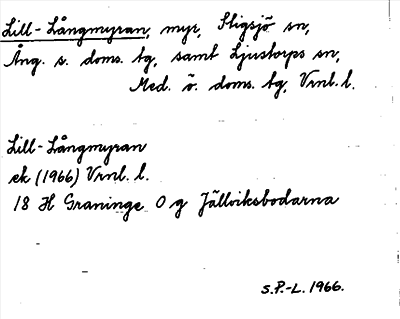 Lill-Långmyran, myr, Stigsjö sn,
Ång. s. doms. tg, samt Ljustorps sn,
Med. ö. doms. tg, Vrnl. l.
Lill-Långmyran
ek (1966) Vrnl. l.
18 H Graninge 0 g Jällviksbodarna
S.P.-L. 1966.